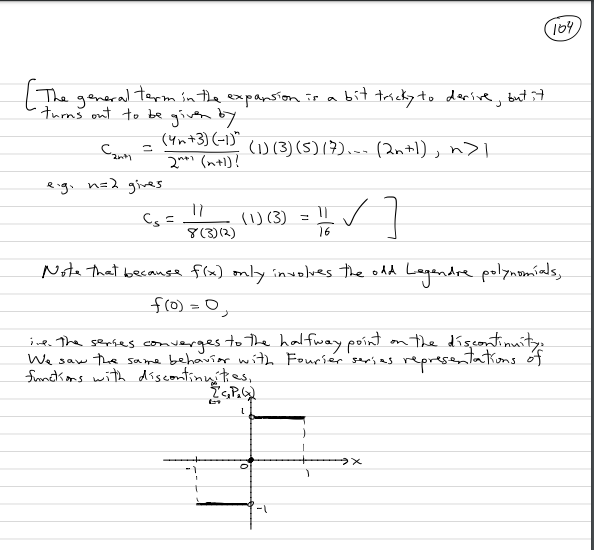 104
[The general term in the expansion is a bit tricky to derive, but it
turns out to be given by
C₂ₙ₊₁ = (4n+3)(-1)ⁿ / 2ⁿ⁺¹ (n+1)! (1)(3)(5)(7)... (2n+1), n>1
e.g. n=2 gives
C₅ = 11 / 8(3)(2) (1)(3) = 11/16 ✓ ]
Note that because f(x) only involves the odd Legendre polynomials,
f(0) = 0,
i.e. the series converges to the halfway point on the discontinuity.
We saw the same behavior with Fourier series representations of
functions with discontinuities.
1
-1 0 1 → x
-1